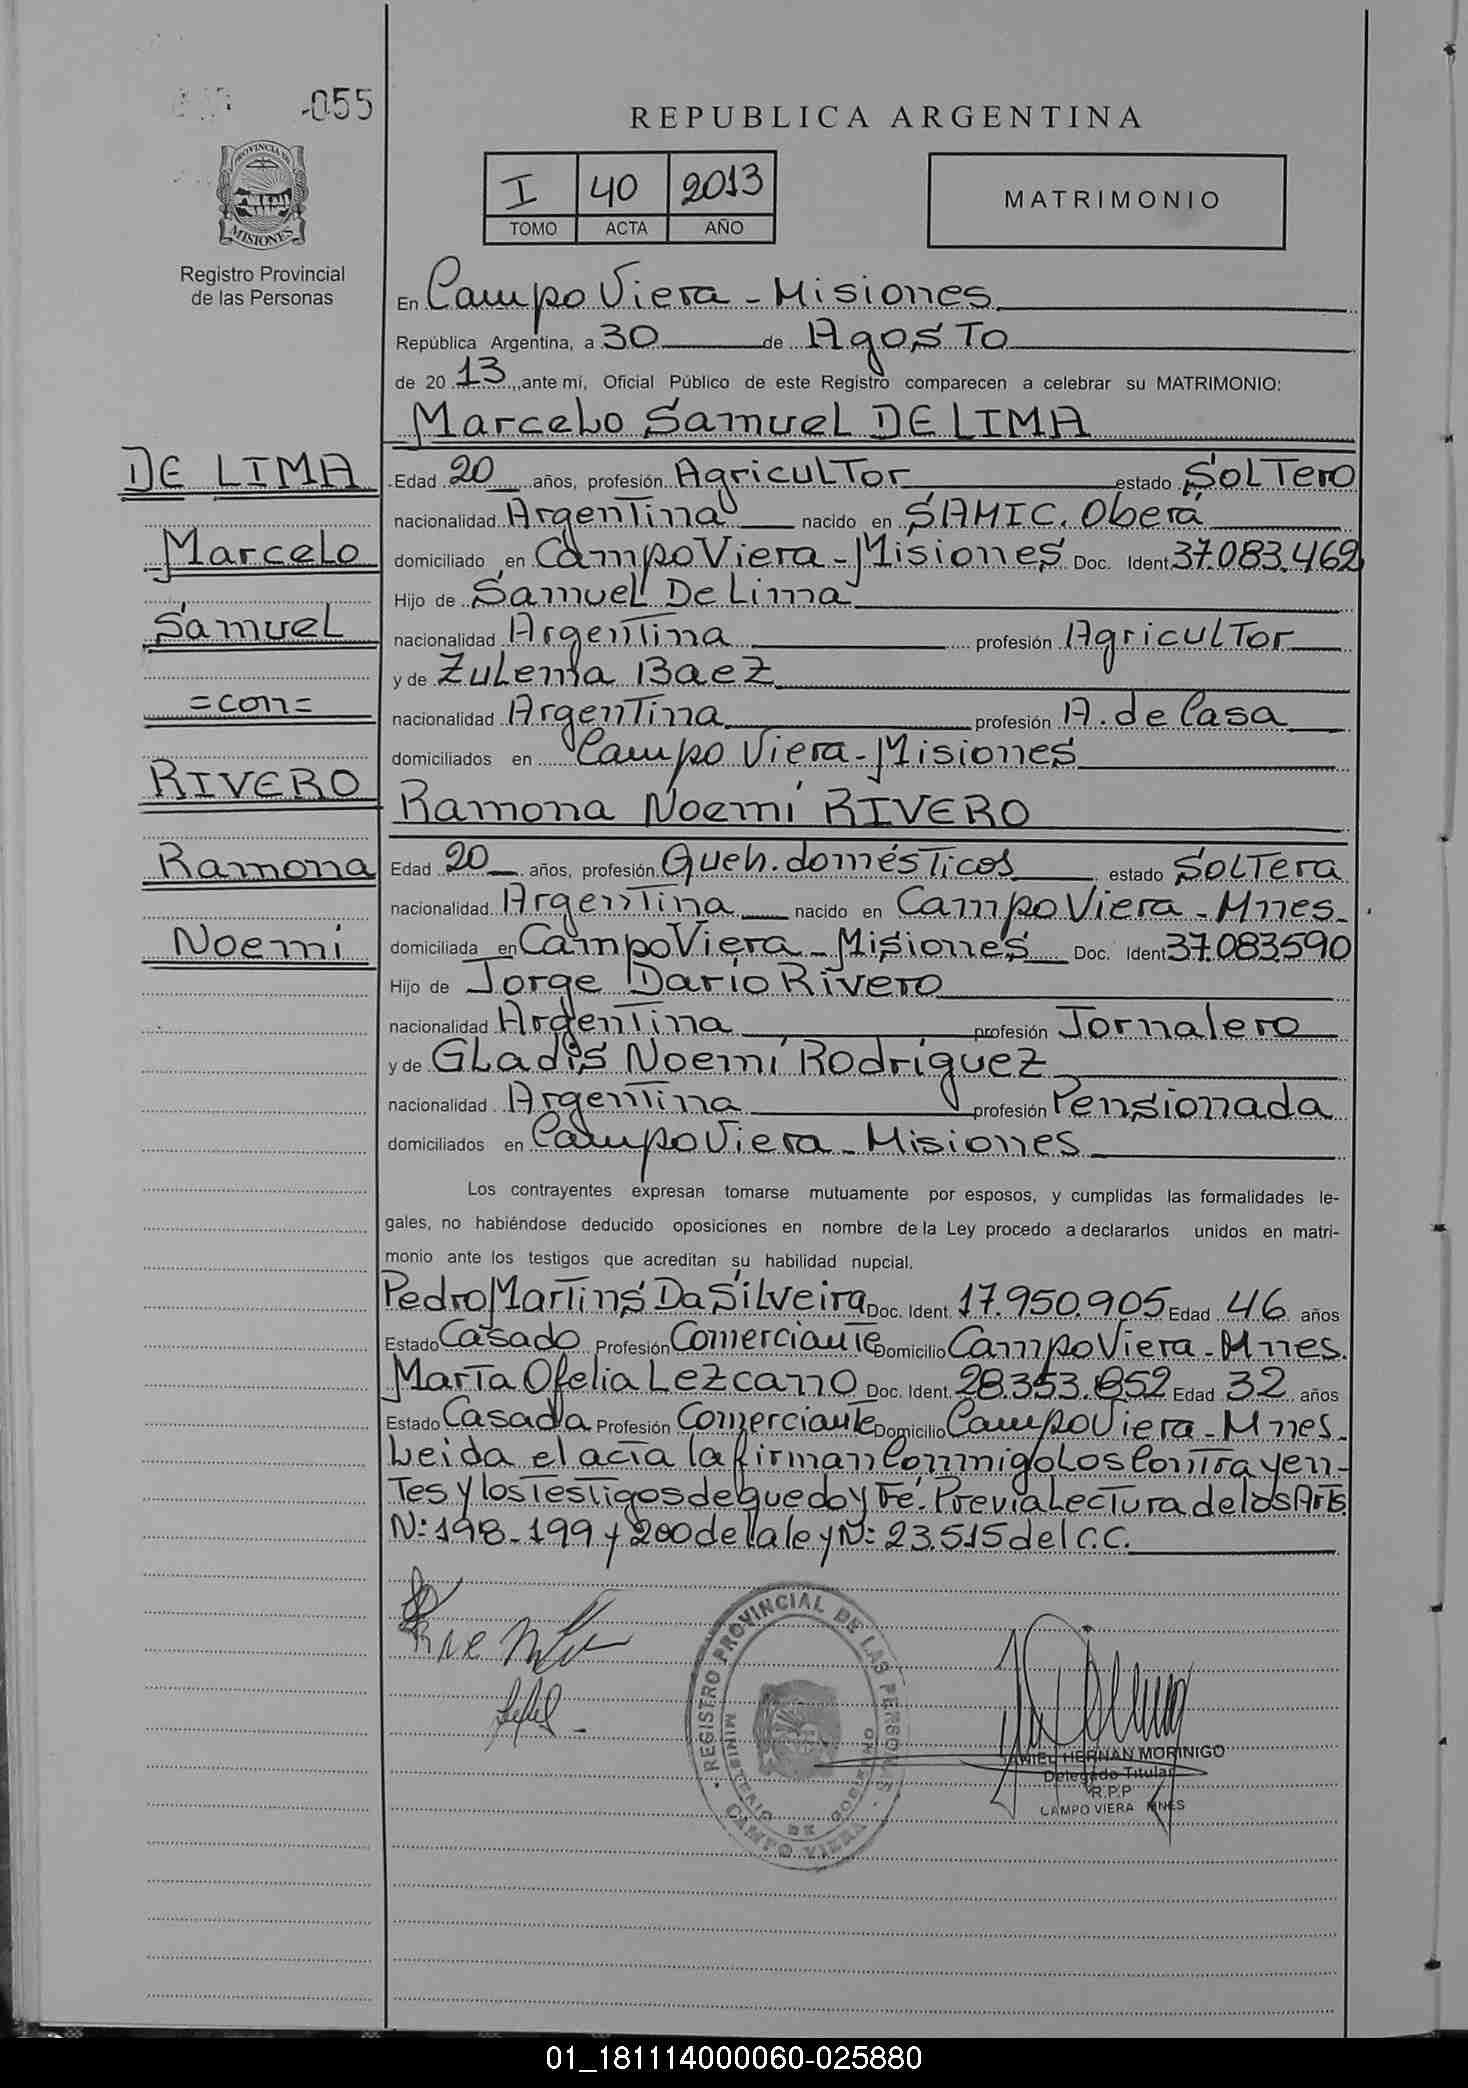 -055
REPUBLICA ARGENTINA
PROVINCIA DE
MISIONES
Registro Provincial
de las Personas
I 40 2013
TOMO ACTA AÑO
MATRIMONIO
En Campo Viera - Misiones
República Argentina, a 30 de Agosto
de 20 13, ante mí, Oficial Público de este Registro comparecen a celebrar su MATRIMONIO:
Marcelo Samuel DE LIMA
DE LIMA
Marcelo
Samuel
=con=
RIVERO
Ramona
Noemi
Edad 20 años, profesión Agricultor estado Soltero
nacionalidad Argentina nacido en SAMIC. Oberá
domiciliado en Campo Viera - Misiones Doc. Ident 37.083.462
Hijo de Samuel De Lima
nacionalidad Argentina profesión Agricultor
y de Zulema Baez
nacionalidad Argentina profesión A. de Casa
domiciliados en Campo Viera - Misiones
Ramona Noemí RIVERO
Edad 20 años, profesión Queh. domésticos estado Soltera
nacionalidad Argentina nacido en Campo Viera - Mnes.
domiciliada en Campo Viera - Misiones Doc. Ident 37.083590
Hijo de Jorge Darío Rivero
nacionalidad Argentina profesión Jornalero
y de Gladis Noemí Rodríguez
nacionalidad Argentina profesión Pensionada
domiciliados en Campo Viera - Misiones
Los contrayentes expresan tomarse mutuamente por esposos, y cumplidas las formalidades le-
gales, no habiéndose deducido oposiciones en nombre de la Ley procedo a declararlos unidos en matri-
monio ante los testigos que acreditan su habilidad nupcial.
Pedro Martins Da Silveira Doc. Ident. 17.950.905 Edad 46 años
Estado Casado Profesión Comerciante Domicilio Campo Viera - Mnes.
María Ofelia Lezcano Doc. Ident. 28.353.852 Edad 32 años
Estado Casada Profesión Comerciante Domicilio Campo Viera - Mnes.
Leida el acta la firman Conmigo Los Contrayen-
tes y los Testigos de que doy Fé. Previa Lectura de los Arts.
N: 198-199 y 200 de la ley N: 23.515 del C.C.
REGISTRO PROVINCIAL DE LAS PERSONAS
MINISTERIO DE GOBIERNO
CAMPO VIERA
DANIEL HERNAN MORINIGO
Delegado Titular
R.P.P
CAMPO VIERA MNES
01_181114000060-025880